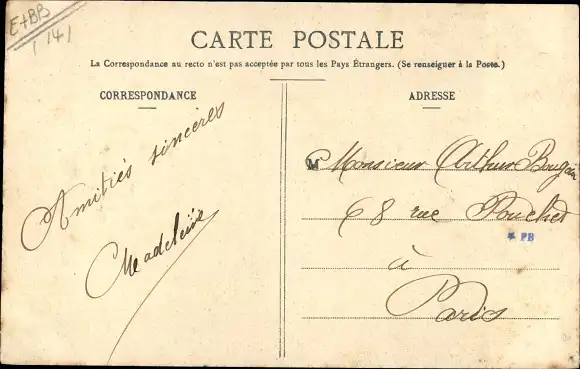 E+BB
141
CARTE POSTALE
La Correspondance au recto n'est pas acceptée par tous les Pays Étrangers. (Se renseigner à la Poste.)
CORRESPONDANCE
Amitiés sincères
Madeleine
ADRESSE
Monsieur Arthur Bougain
68 rue Pouchet
* PB
à
Paris